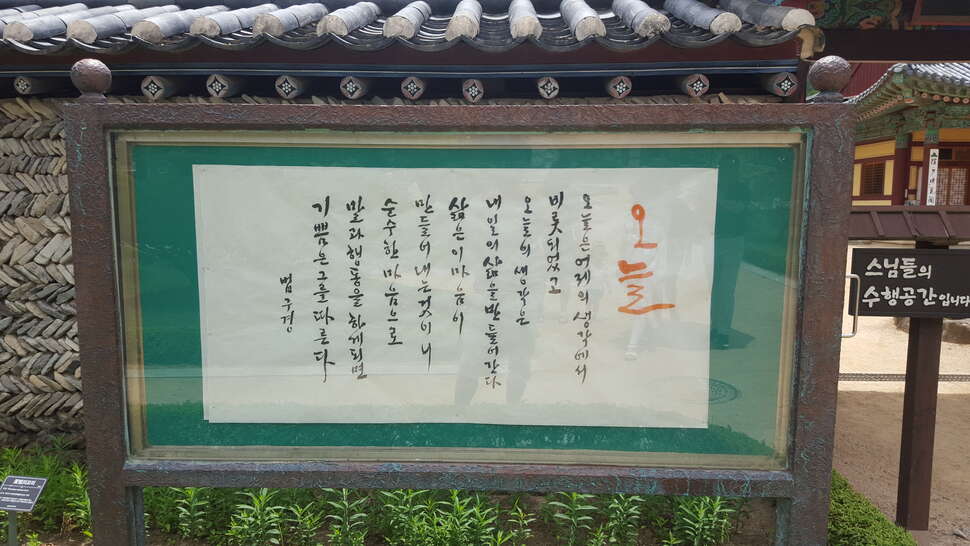 오늘
오늘은 어제의 생각에서
비롯되었고
오늘의 생각은
내일의 삶을 만들어 간다
삶은 이 마음이
만들어 내는 것이니
순수한 마음으로
말과 행동을 하게 되면
기쁨은 그를 따른다
법구경
스님들의
수행공간입니다